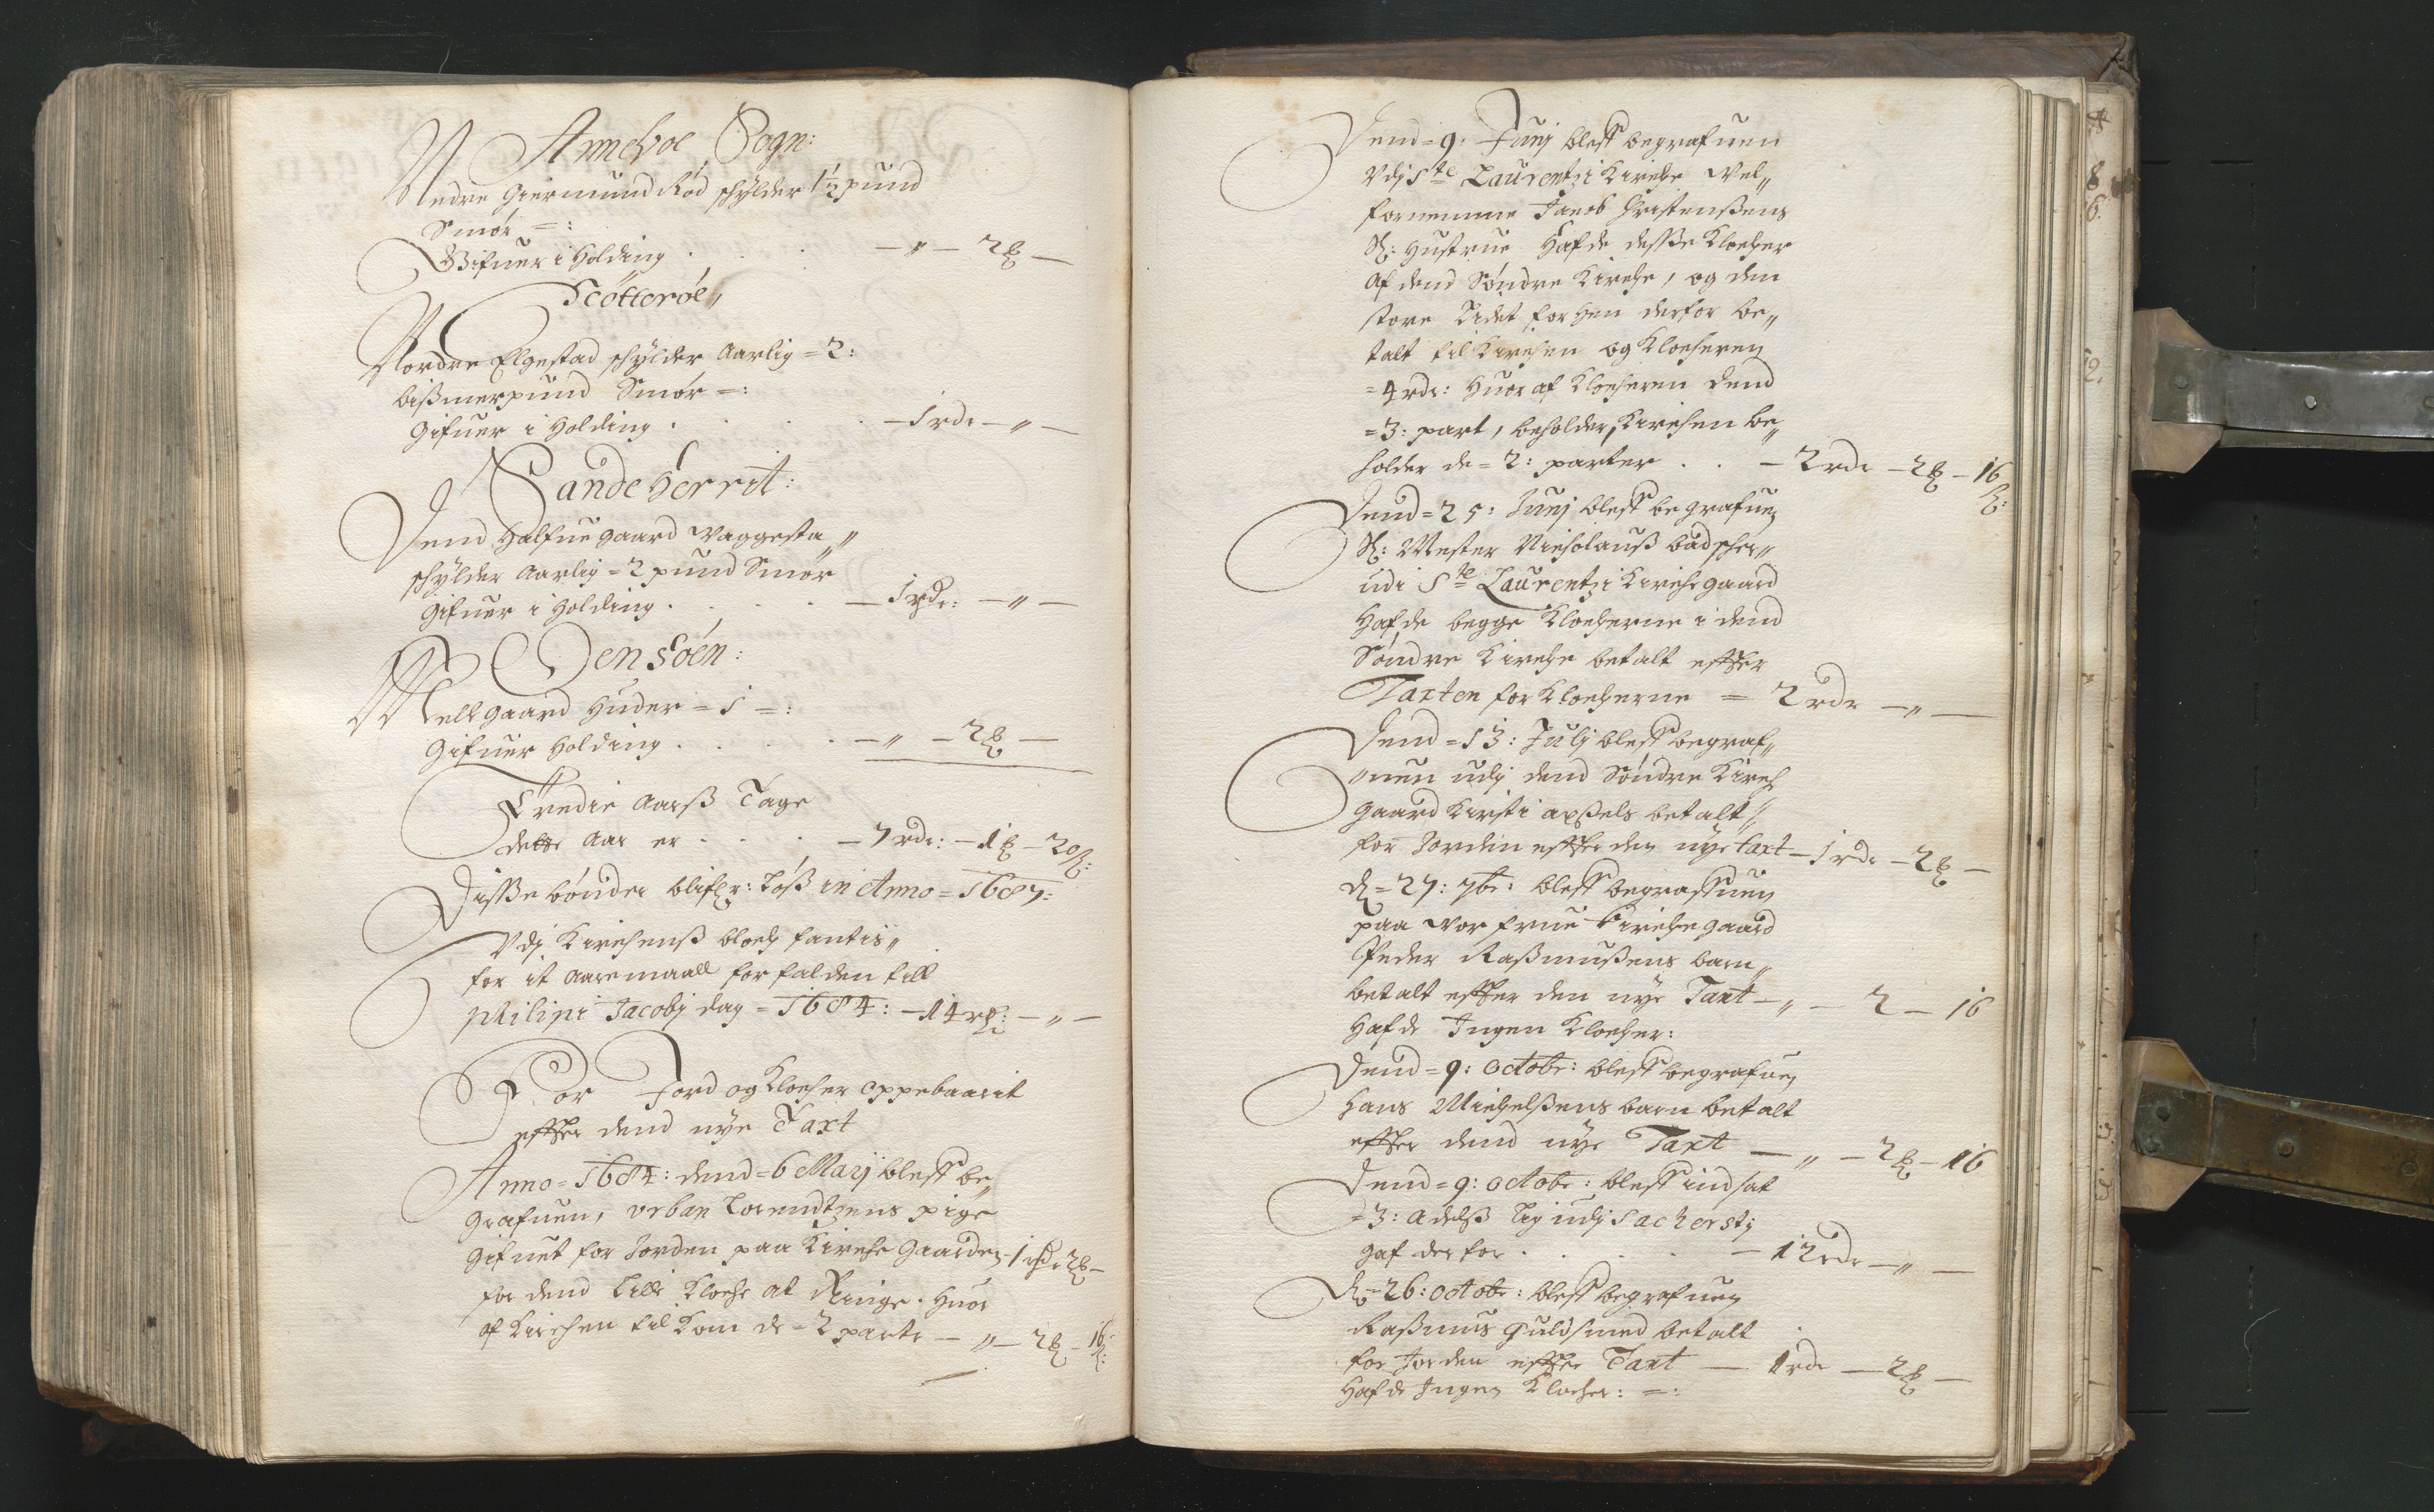 Arneboe Sogn:
Nedre Giermund Rød schylder 1½ pund
Smør =:
Gifuer i Holding . . . — " — 2 ℔ —
Scótteróe"
Nordre Elgestad schylder Aarlig = 2:
bißmerpund Smór =:
Gifuer i Holding . . . . — 1 rdr — " —
Sande Herrit:
Dend Halfue gaard Waggesta"
schylder Aarlig = 2 pund Smór
Gifuer i Holding . . . . — 1 rdr: — " —
Jensóen:
Mellgaard Huder = 1 =:
Gifuer Holding . . . . — " — 2 ℔ —
Tredie Aarß Tage
dette Aar er . . . — 7 rdr: — 1 ℔ — 20 ß:
Disse bónder blifr: lóß in Anno = 1687:
Vdj Kirchenß
for it Aaremaall forfalden till
Philipi Jacobj dag = 1684: — 14 rdr: — " —
For Jord og Klocher oppebaarit
effter dend nye Taxt
Anno = 1684: dend = 6 Marj bleff be"
grafuen, Urban Lorendtzens pige
gifuet for Jorden paa Kirche Gaarden — 1 rdr 2 ℔ —
for dend lille Kloche at Ringe. Huor
af Kirchen tilkom de = 2 parte — " — 2 ℔ — 16 ß:
Dend = 9. Junj bleff begrafuen
Vdj Ste Laurentzi Kirche Wel"
fornemme Jacob Christenßens
Sl: Hustrue hafde desse Klocher
af dend Søndre Kirche, og den
store Tidet forhen derfor be"
talt til Kirchen og Klocheren
= 4 rdr: Huor af Klocheren dend
= 3: part, beholder, Kirchen be"
holder de = 2: parter . . — 2 rdr — 2 ℔ — 16 ß:
Dend = 25: Junj bleff begrafuen
Sl: Mester Nicholauß badscher"
udi Ste Laurentzi Kirche gaard
Hafde begge Klocherne i dend
Søndre Kirche betalt effter
Taxten for Klocherne = 2 rdr — " —
Dend = 13: Julj bleff begraf"
"uen udj dend Søndre Kirch
gaard Kirsti axßels betalt"
for Jorden effter den nye taxt — 1 rdr — 2 ℔ —
D. = 27: 7br: bleff begraffuen
paa Vor frue Kirche gaard
Peder Raßmußens barn"
betalt effter den nye Taxt — " — 2 — 16
Hafde Ingen Klocher:
Dend = 9: octobr: bleff begrafuen
Hans Michelßens barn betalt
effter dend nye Taxt — " — 2 ℔ — 16
Dend = 9: octobr: bleff indsat
= 3: Adelß lig udj Sacherstj
gaf derfor . . . . — 12 rdr — " —
D. = 26: octobr: bleff begrafuen
Raßmus Guldsmed betalt
for Jorden effter Taxt — 1 rdr — 2 ℔ —
Hafde Ingen Klocher: =: